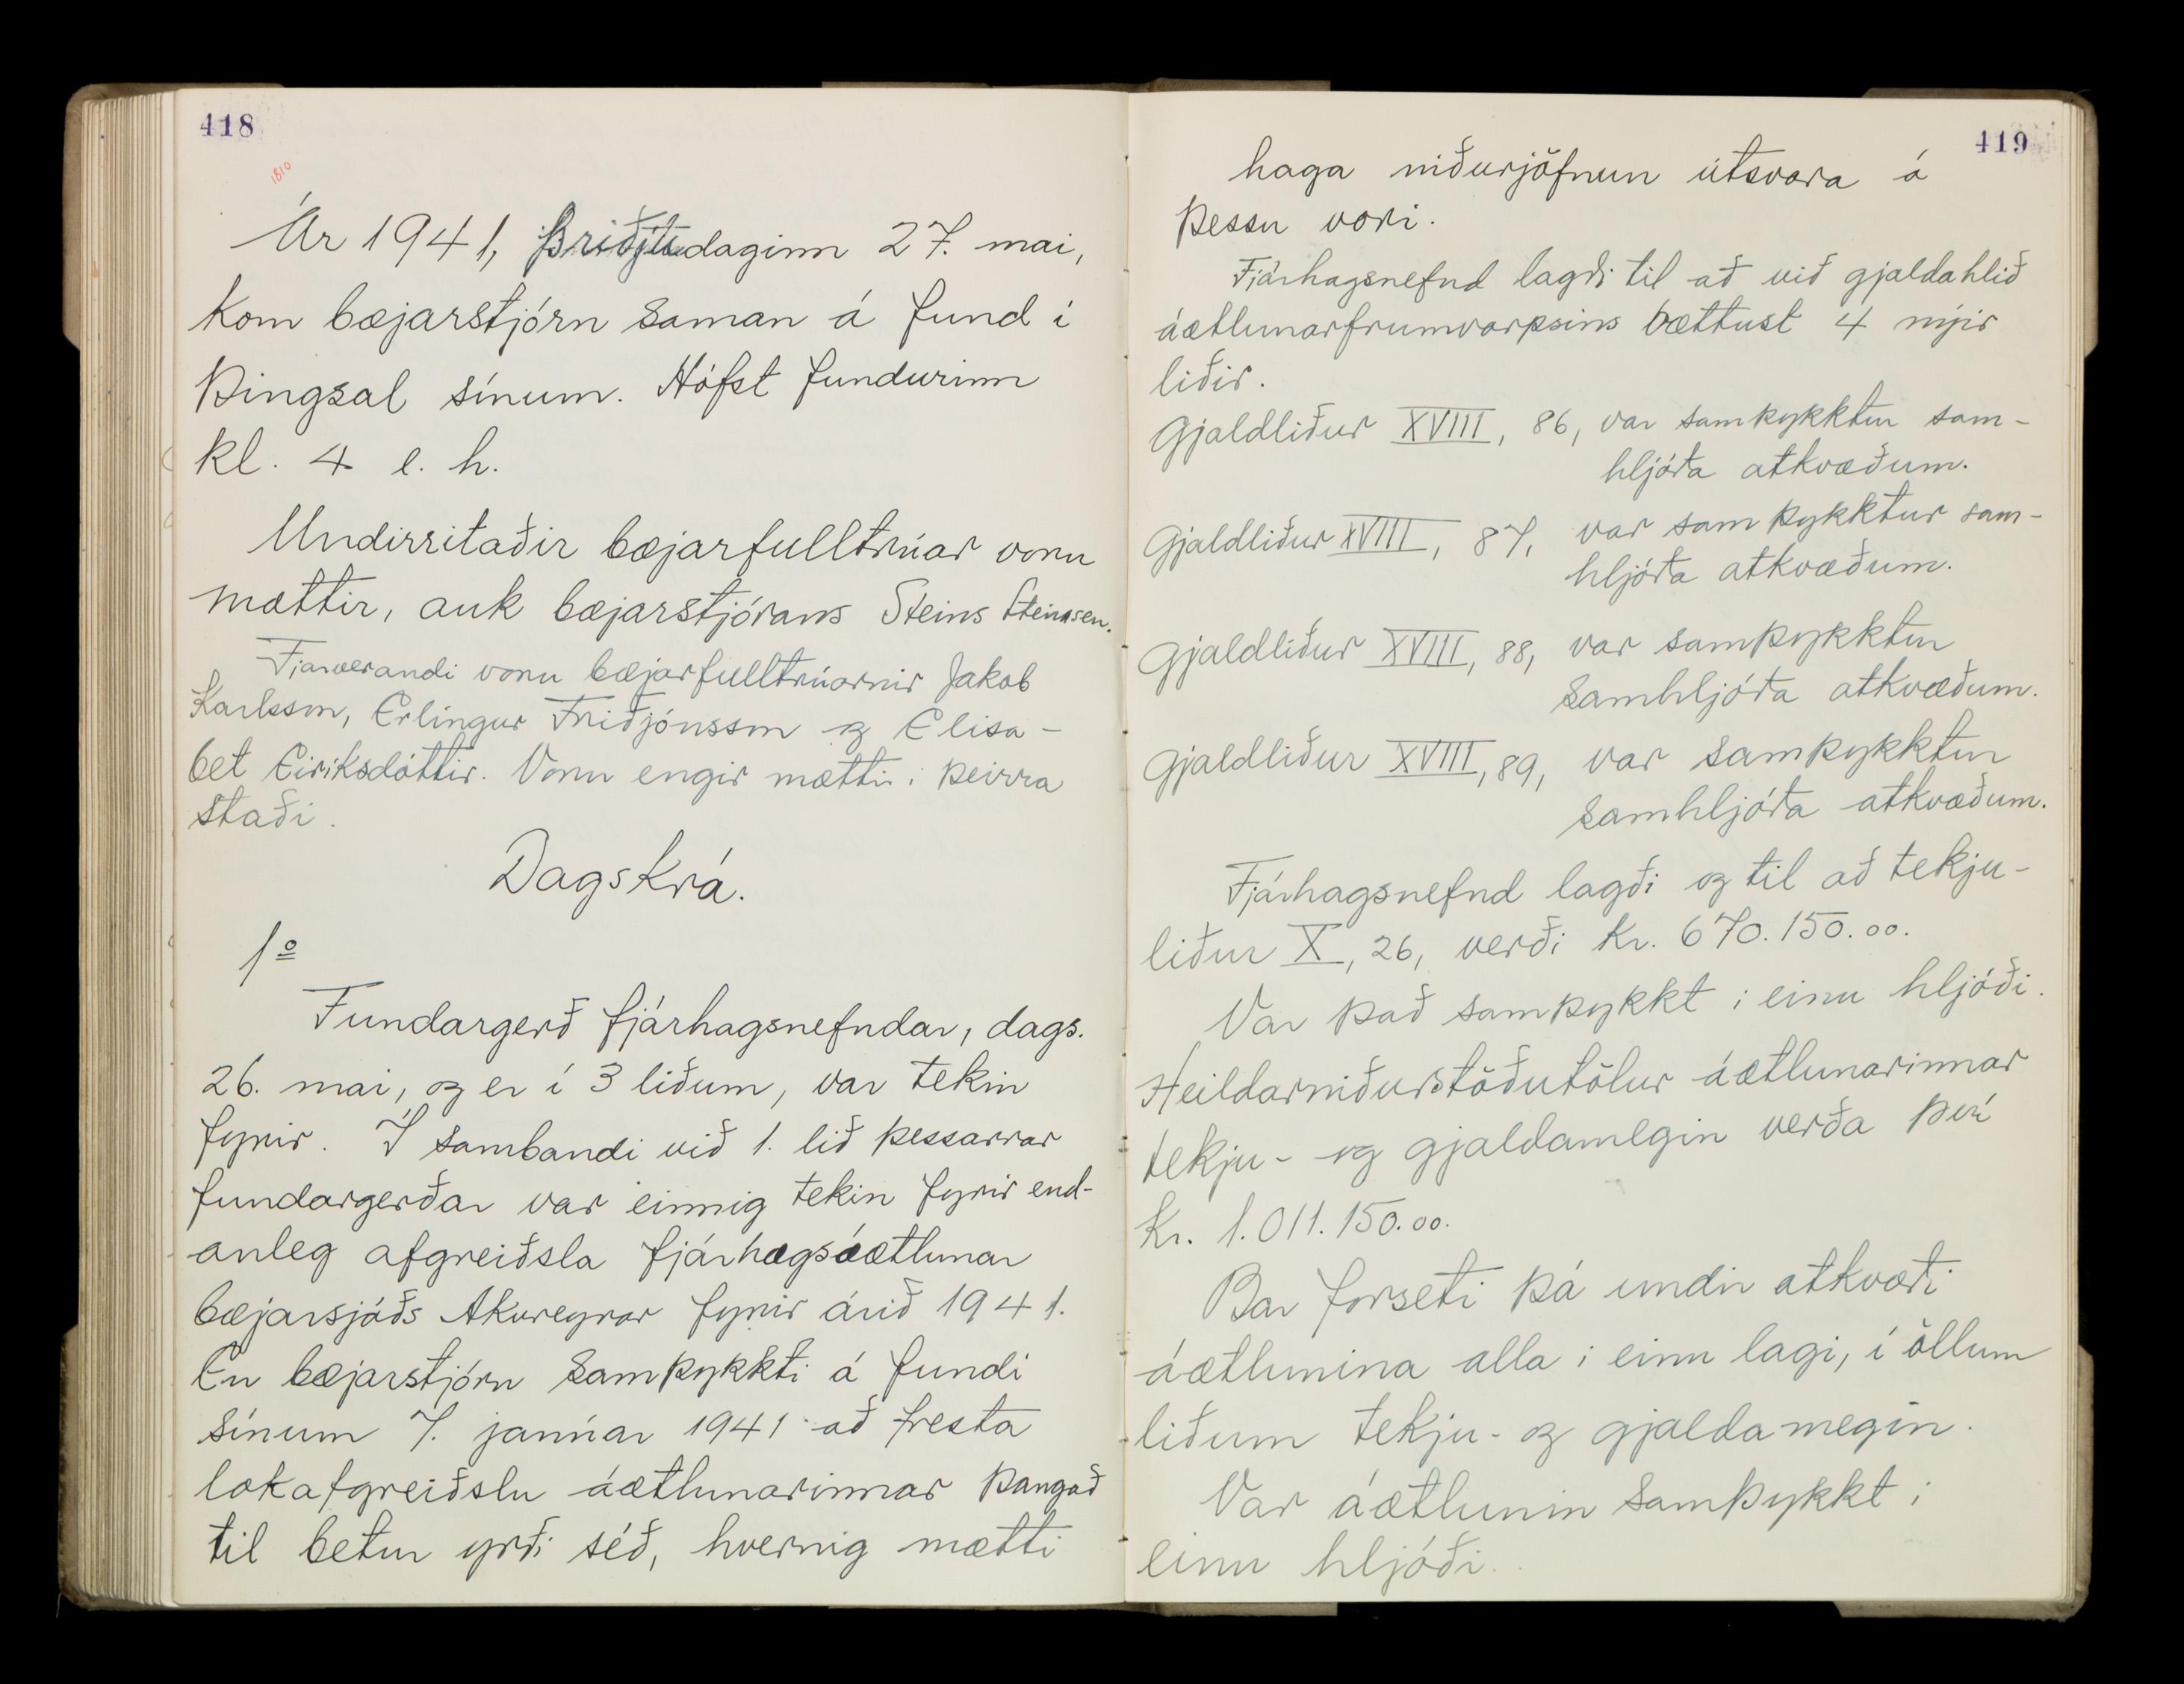 418
1810
Ár 1941, þriðjudaginn 27. mai,
kom bæjarstjórn saman á fund í
þingsal sínum. Hófst fundurinn
kl. 4 e. h.
Undirritaðir bæjarfulltrúar voru
mættir, auk bæjarstjórans Steins Steinsen.
Fjarverandi voru bæjarfulltrúarnir Jakob
Karlsson, Erlingur Friðjónsson og Elisa-
bet Eiriksdóttir. Voru engir mættir i þeirra
staði.
Dagskrá.
1º
Fundargerð fjárhagsnefndar, dags.
26. mai, og er í 3 liðum, var tekin
fyrir. Í sambandi við 1. lið þessarrar
fundargerðar var einnig tekin fyrir end-
anleg afgreiðsla fjárhagsáætlunar
bæjarsjóðs Akureyrar fyrir árið 1941.
En bæjarstjórn samþykkti á fundi
sínum 7. janúar 1941 að fresta
lokafgreiðslu áætlunarinnar þangað
til betur yrði séð, hvernig mætti
419
haga niðurjöfnun útsvara á
þessu vori.
Fjárhagsnefnd lagði til að við gjaldahlið
áætlunarfrumvarpsins bættust 4 nýir
liðir.
Gjaldliður XVIII, 86, var samþykktur sam-
hljóða atkvæðum.
Gjaldliður XVIII, 87, var samþykktur sam-
hljóða atkvæðum.
Gjaldliður XVIII, 88, var samþykktur
samhljóða atkvæðum.
Gjaldliður XVIII, 89, var samþykktur
samhljóða atkvæðum.
Fjárhagsnefnd lagði og til að tekju-
liður X, 26, verði kr. 670.150.00.
Var það samþykkt i einu hljóði.
Heildarniðurstöðutölur áætlunarinnar
tekju- og gjaldamegin verða því
kr. 1.011.150.00.
Bar forseti þá undir atkvæði
áætlunina alla i einu lagi, í öllum
liðum tekju- og gjaldamegin.
Var áætlunin samþykkt i
einu hljóði.